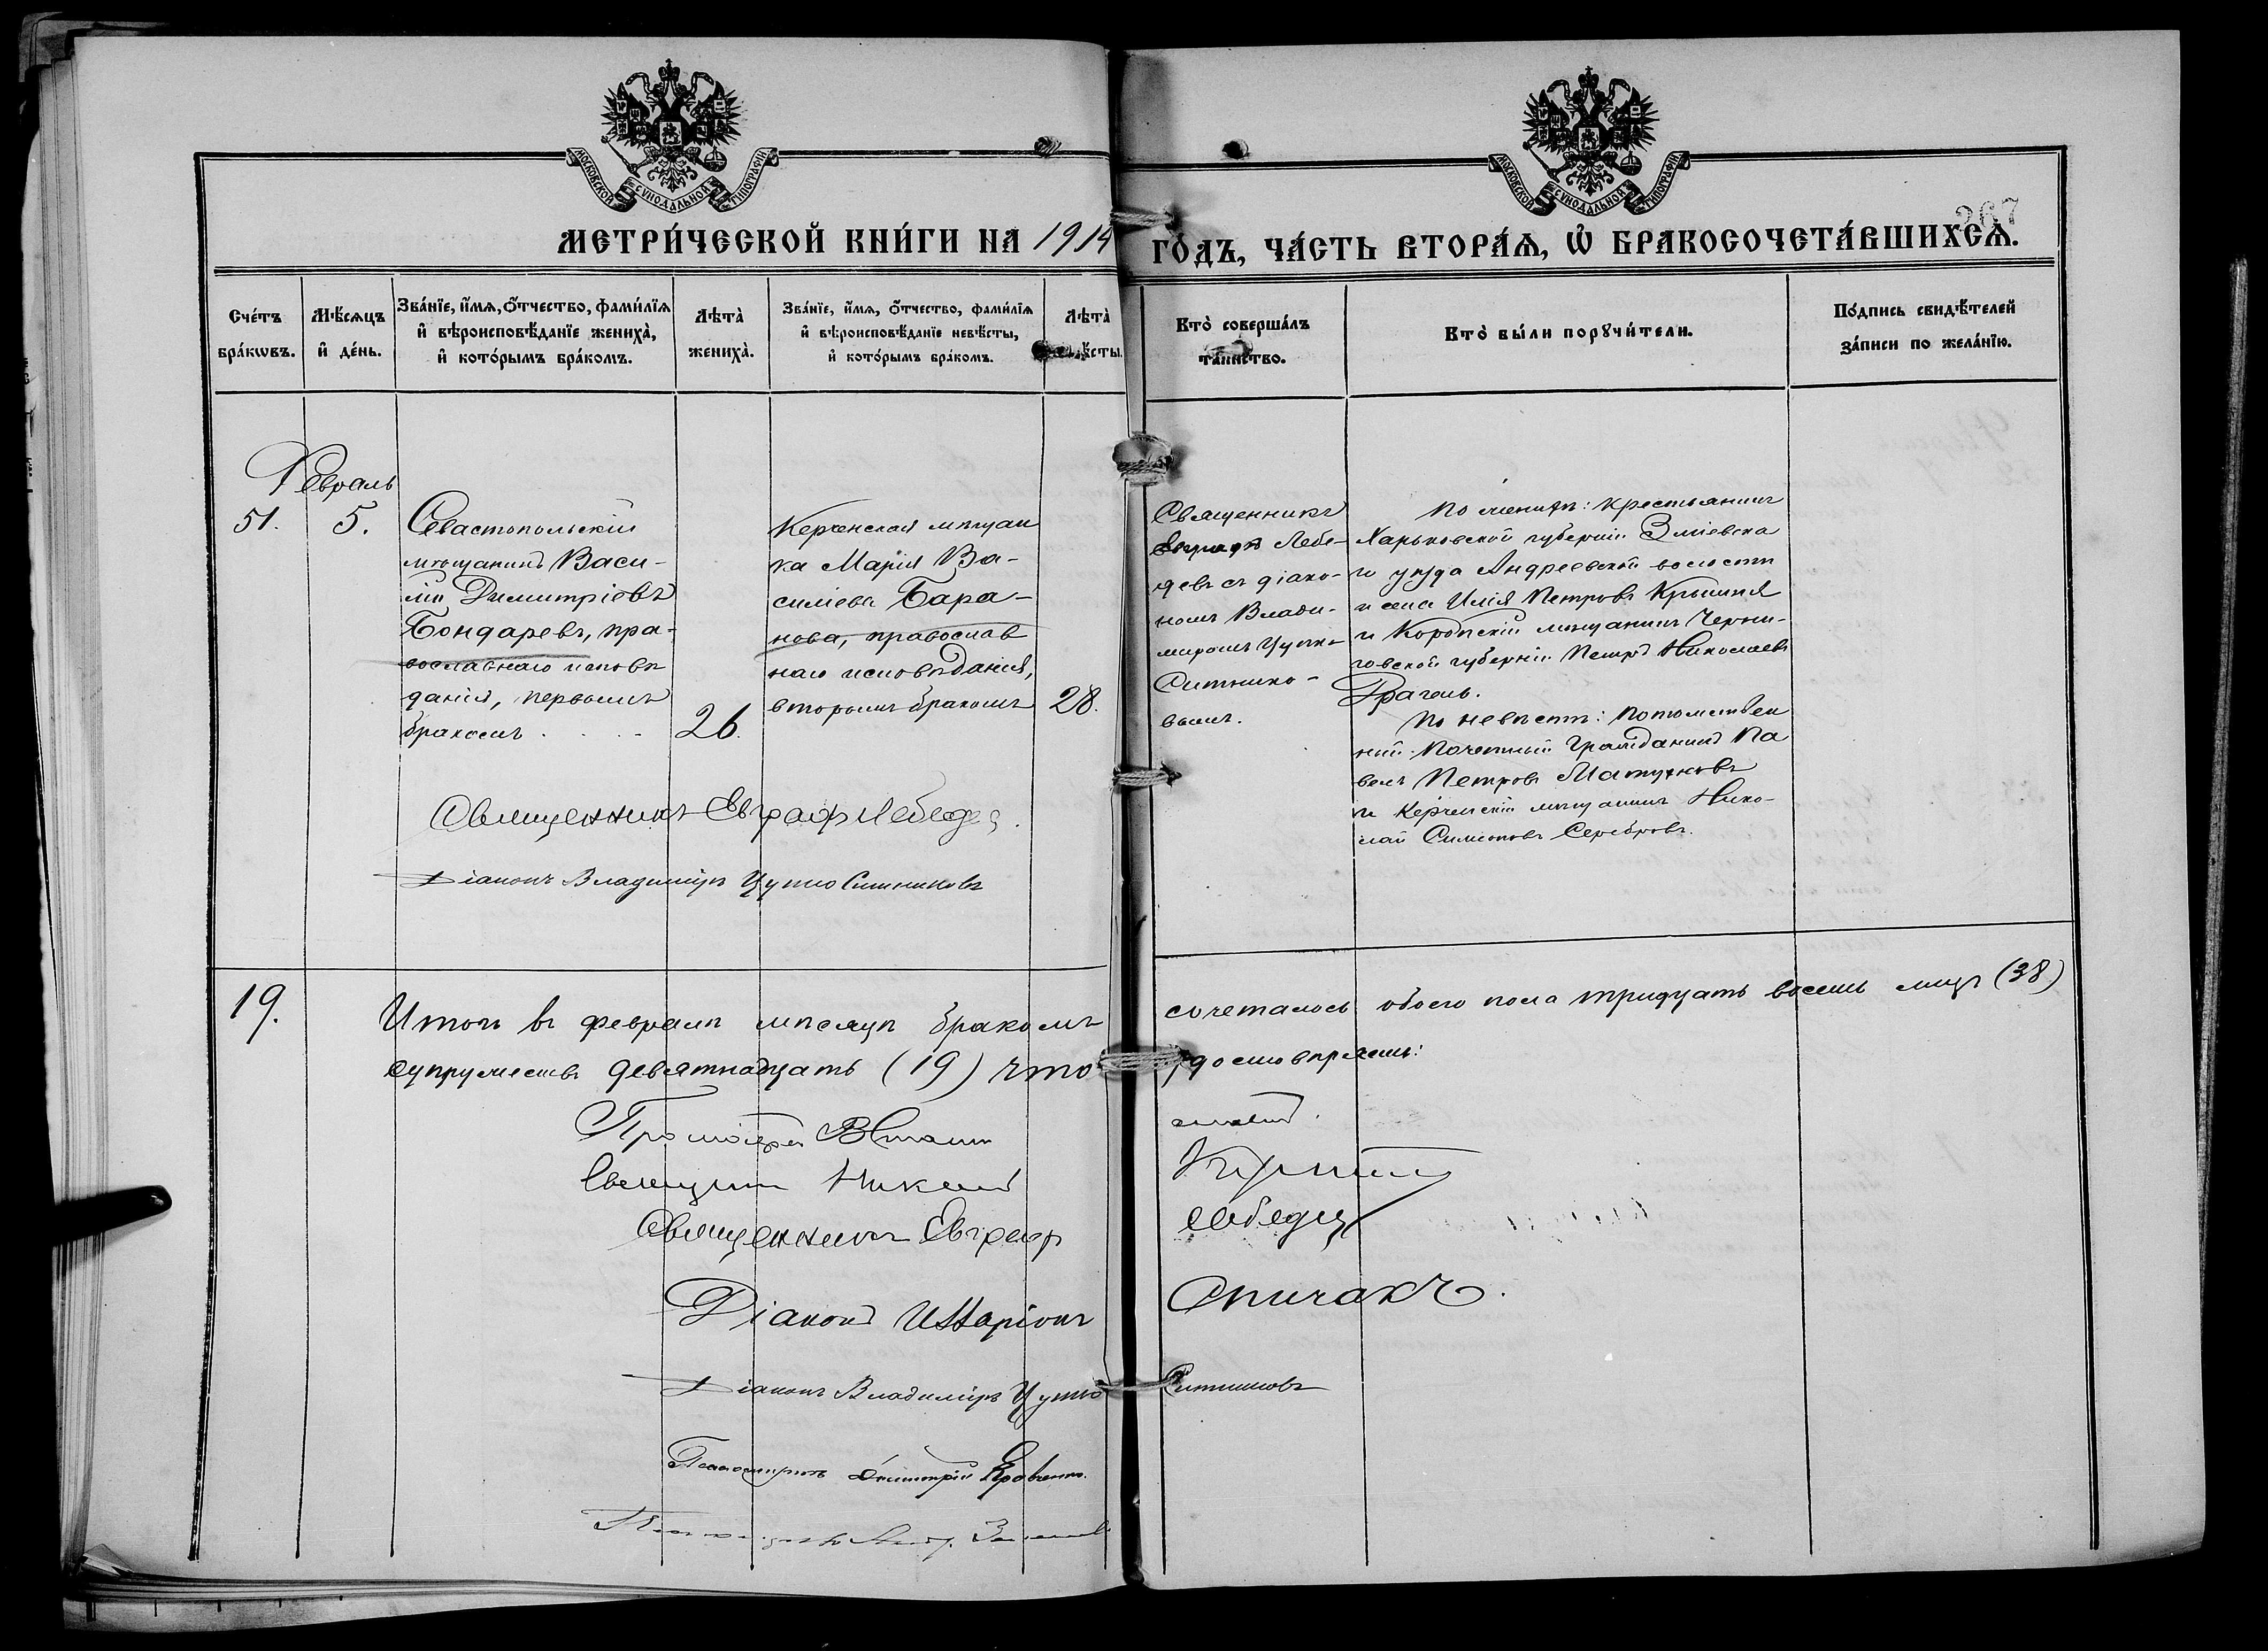 МОСКОВСКОЙ СѴНОДАЛЬНОЙ ТИПОГРАФІИ
МОСКОВСКОЙ СѴНОДАЛЬНОЙ ТИПОГРАФІИ
267
МЕТРИ́ЧЕСКОЙ КНИ́ГИ НА 1914
ГО́ДЪ, ЧА́СТЬ ВТОРА́Ѧ, Ѽ БРАКОСОЧЕТА́ВШИХСѦ.
Сче́тъ
бра́кѡвъ.
Мѣ́сѧцъ
и҆ де́нь.
Зва́нїе, и҆́мѧ, ѻ҆́тчество, фами́лїѧ
и҆ вѣроисповѣ́данїе жениха̀,
и҆ кото́рымъ бра́комъ.
Лѣта̀
жениха̀.
Зва́нїе, и҆́мѧ, ѻ҆́тчество, фами́лїѧ
и҆ вѣроисповѣ́данїе невѣ́сты,
и҆ кото́рымъ бра́комъ.
Лѣта̀
невѣ́сты.
Кто̀ соверша́лъ
та́инство.
Кто̀ бы́ли порꙋчи́тели.
По́дпись свидѣ́телей
за́писи по жела́нїю.
Февраль
51.
5.
Севастопольскій
мѣщанинъ Васи-
лій Димитріевъ
Бондаревъ, пра-
вославнаго исповѣ
данія, первымъ
бракомъ
26.
Керченская мѣщан
ка Марія Ва-
сильева Бара-
нова, православ
наго исповѣданія,
вторымъ бракомъ
28.
Священникъ
Евграфъ Лебе-
девъ съ діако-
номъ Влади-
миромъ Цупко-
Ситнико-
вымъ.
По женихѣ: крестьянинъ
Харьковской губерніи Зміевска
го уѣзда Андреевской волости
и села Илія Петровъ
и Коропскій мѣщанинъ Черни-
говской губерніи Петръ Николаевъ
По невѣстѣ: потомствен
ный Почетный Гражданинъ Па
велъ Петровъ
и Керченскій мѣщанинъ Нико-
лай Симоновъ Серебровъ.
Священникъ Евграфъ Лебедев.
Діаконъ Владиміръ Цупко Ситниковъ
19.
Итого въ февралѣ мѣсяцѣ бракомъ
сочеталось обоего пола тридцать восемь лицъ (38)
супружествъ девятнадцать (19) что
удостовѣряемъ:
Протоіерей
Священникъ Николай
Священникъ Евграф
Лебедев
Діаконъ Илларіонъ
Спичакъ.
Діаконъ Владиміръ Цупко
Ситниковъ
Псаломщикъ Димитрій
Псаломщикъ